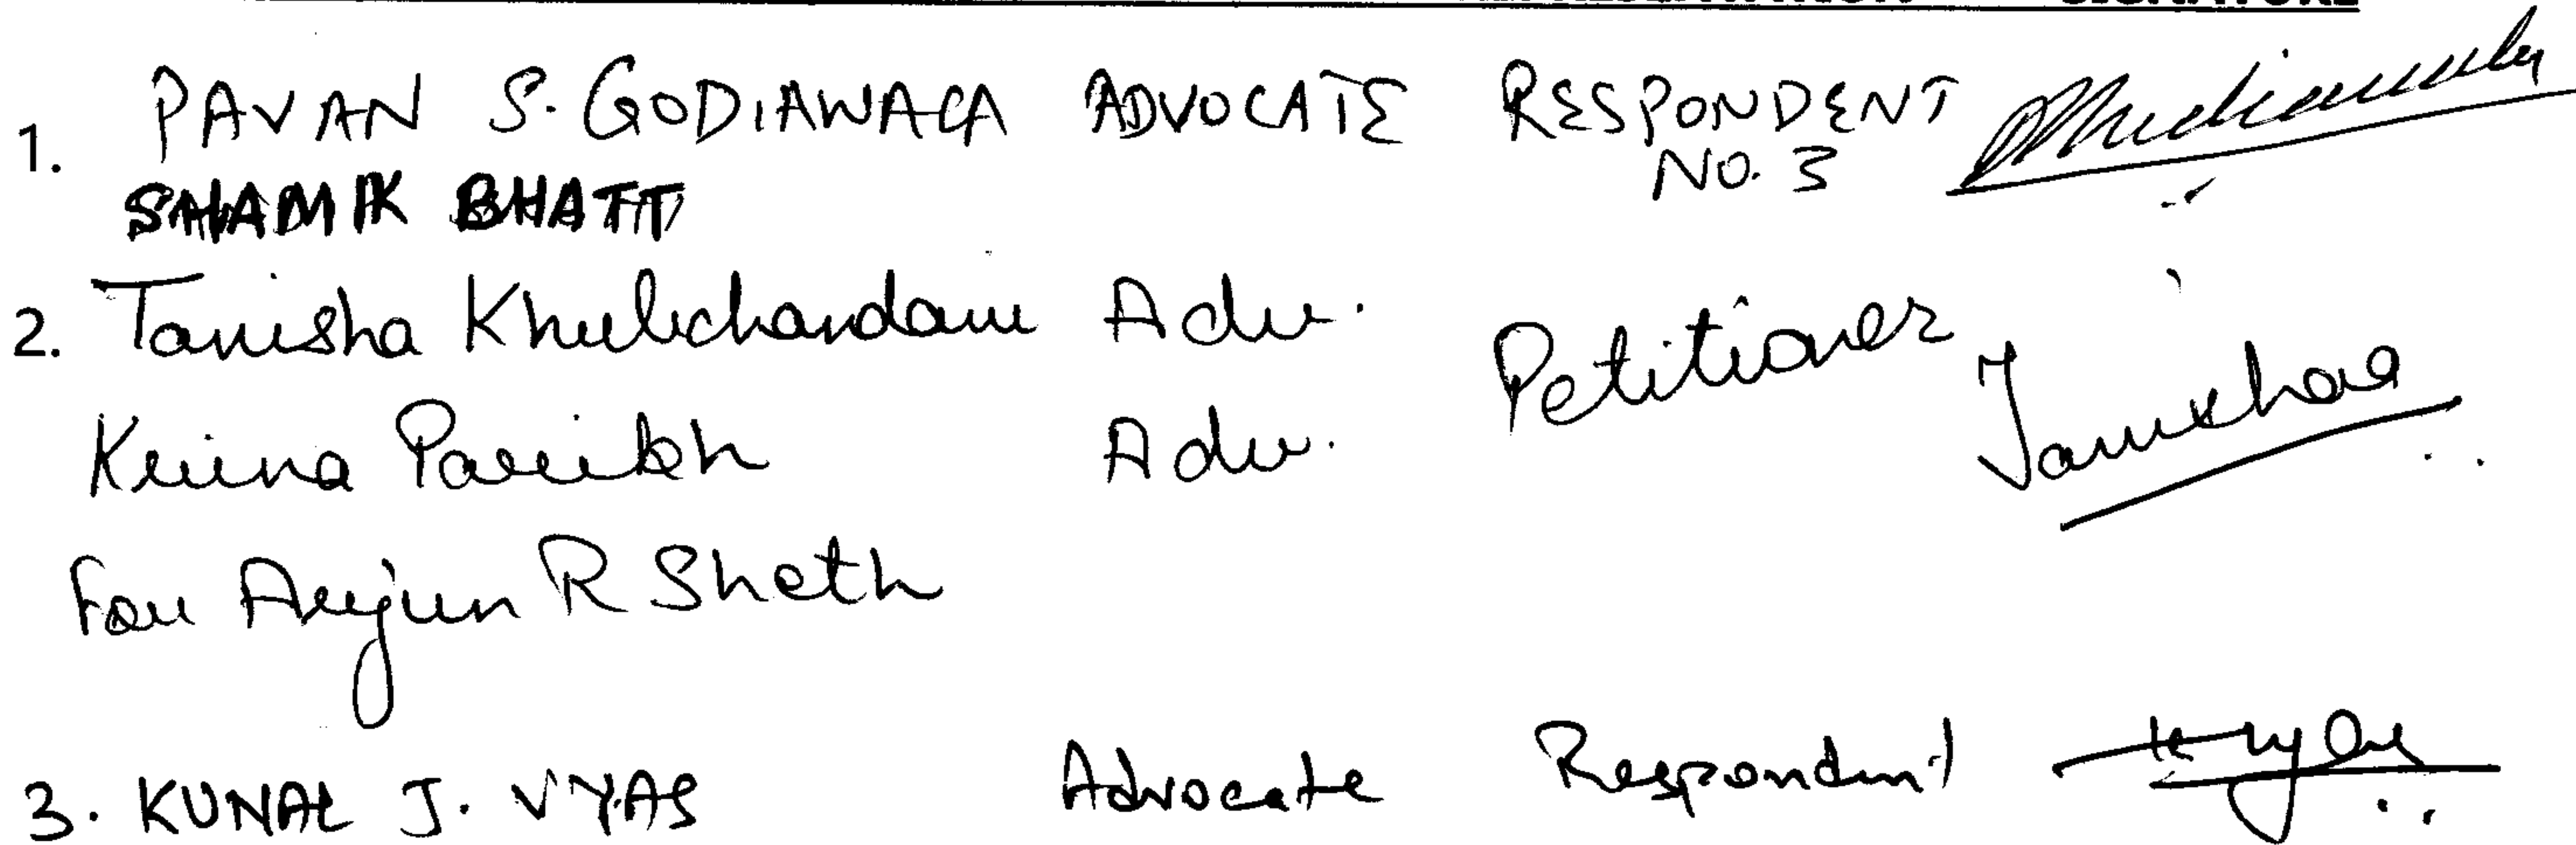 1. PAVAN S. GODIAWALA ADVOCATE RESPONDENT
NO. 3
SHAMIK BHATT
2. Tanisha Khubchandani Adv. Petitioner
Krina Parikh Adv.
For Arjun R Sheth
3. KUNAL J. VYAS Advocate Respondent